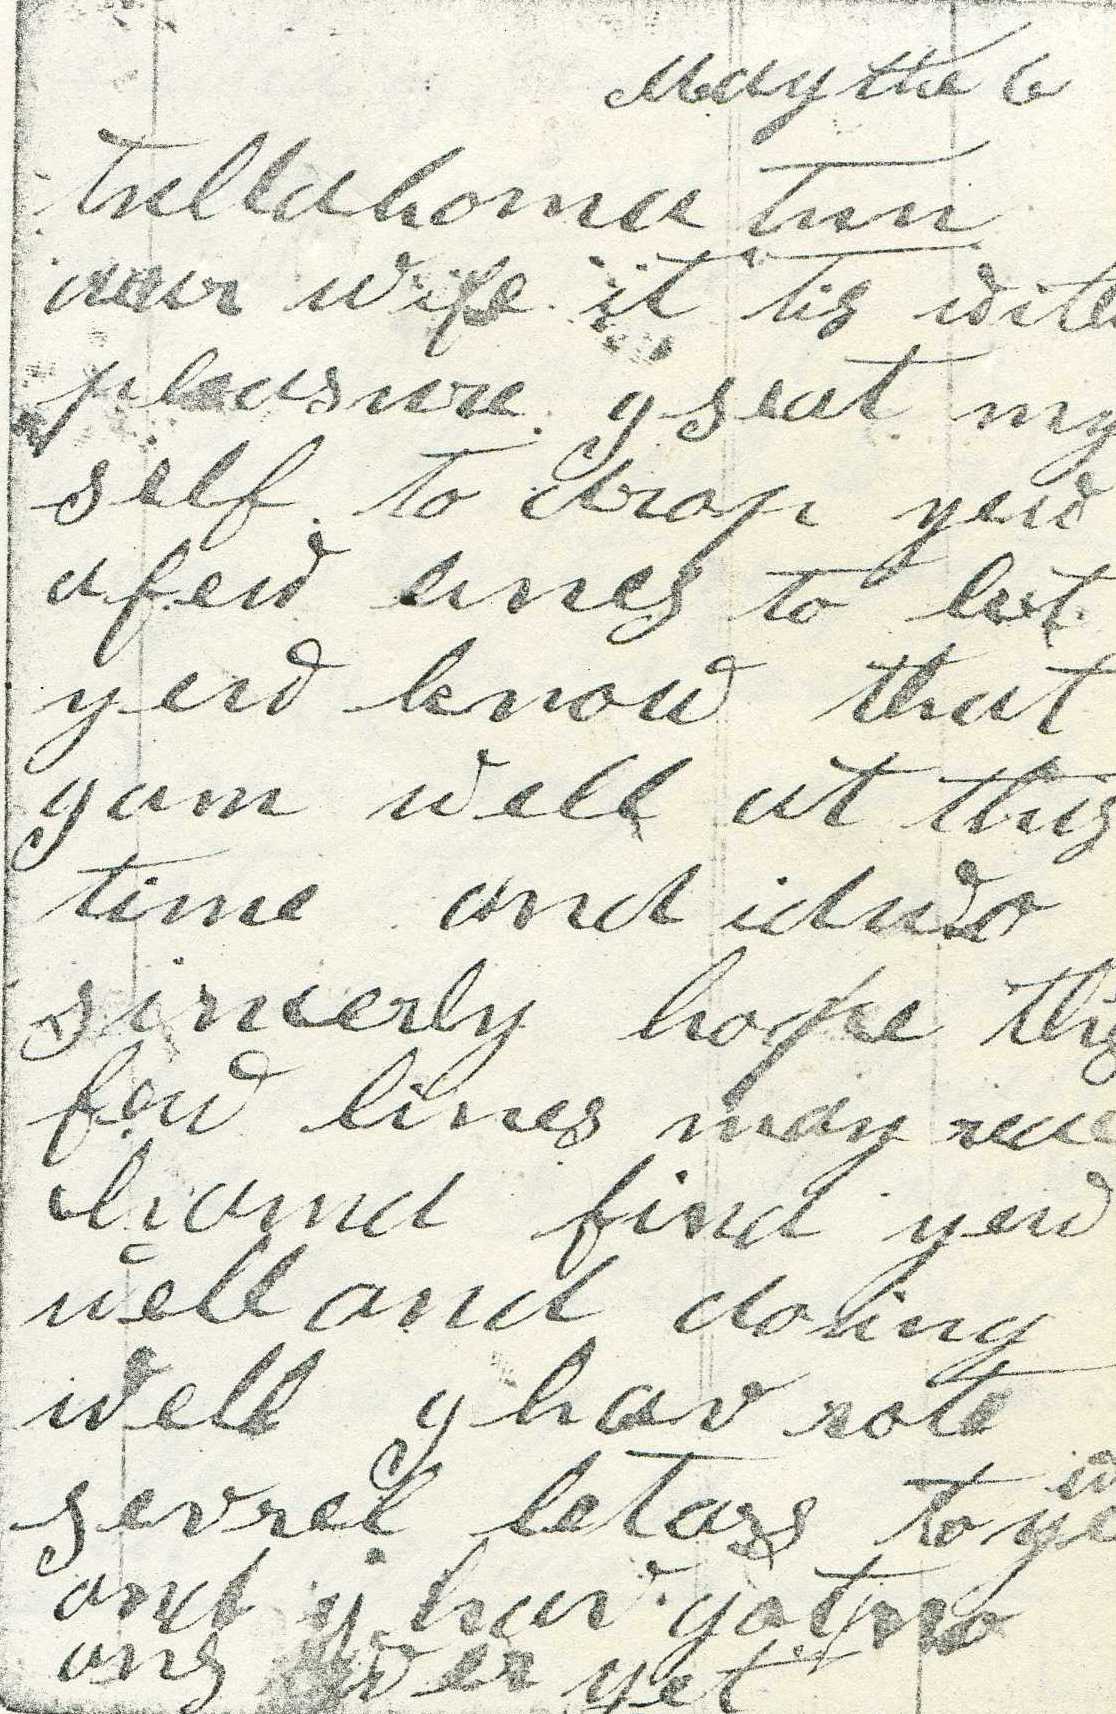 May the 6
tullahoma tnn
dear wife it tis with
pleasure y seat my
self to drop yew
a few lines to let
yew know that
y am well at this
time and i duo
sincerly hope this
few lines may reac
h and find yew
well and doing
well y hav rote
sevrel letars to yew
and y hav got no
ans wer yet